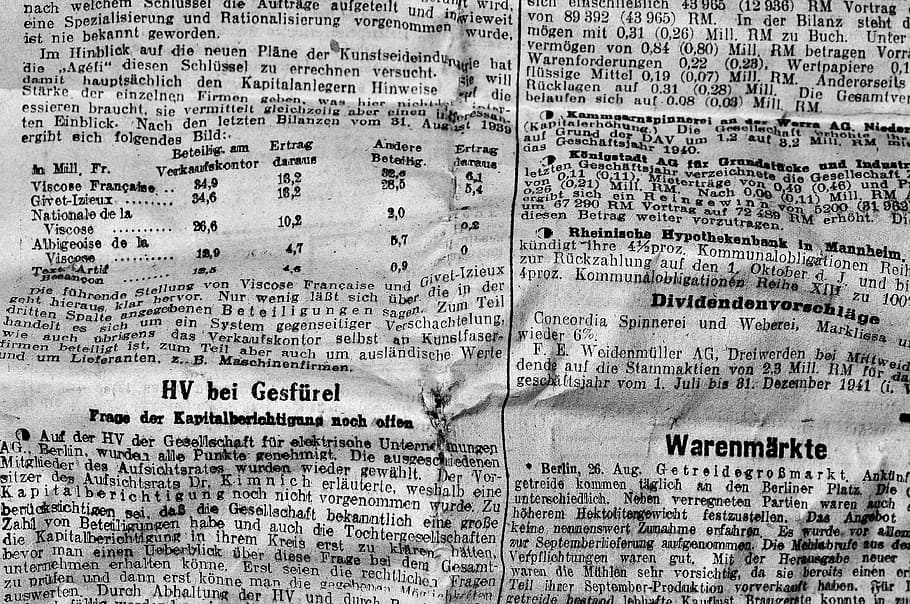 nach welchem Schlüssel die Aufträge aufgeteilt und inwieweit
eine Spezialisierung und Rationalisierung vorgenommen wurde,
ist nie bekannt geworden.
Im Hinblick auf die neuen Pläne der Kunstseideindustrie hat
die „Agéfi" diesen Schlüssel zu errechnen versucht. Sie will
damit hauptsächlich den Kapitalanlegern Hinweise auf die
Stärke der einzelnen Firmen geben, was hier nicht
essieren braucht, sie vermittelt gleichzeitig aber einen
ten Einblick. Nach den letzten Bilanzen vom 31. August 1939
ergibt sich folgendes Bild:
Beteilig. am Ertrag Andere Ertrag
in Mill. Fr. Verkaufskontor daraus Beteilig. daraus
Viscose Française .. 34,9 18,2 6,1
Givet-Izieux ........ 34,6 18,2 28,5 5,4
Nationale de la
Viscose .......... 26,6 10,2 2,0 0,2
Albigeoise de la
Viscose .......... 4,7 5,7
Besançon .......... 0,9 0
Die führende Stellung von Viscose Francaise und Givet-Izieux
geht hieraus klar hervor. Nur wenig läßt sich über die in der
dritten Spalte angegebenen Beteiligungen sagen. Zum Teil
handelt es sich um ein System gegenseitiger Verschachtelung,
wie auch übrigens das Verkaufskontor selbst an Kunstfaser-
firmen beteiligt ist, zum Teil aber auch um ausländische Werte
und um Lieferanten, z. B. Maschinenfirmen.
HV bei Gesfürel
Frage der Kapitalberichtigung noch offen
Auf der HV der Gesellschaft für elektrische Unternehmungen
AG., Berlin, wurden alle Punkte genehmigt. Die ausgeschiedenen
Mitglieder des Aufsichtsrates wurden wieder gewählt. Der Vor-
sitzer des Aufsichtsrats Dr. Kimnich erläuterte, weshalb eine
Kapitalberichtigung noch nicht vorgenommen wurde. Zu
berücksichtigen sei, daß die Gesellschaft bekanntlich eine große
Zahl von Beteiligungen habe und auch die Tochtergesellschaften
die Kapitalberichtigung in ihrem Kreis erst zu klären hätten,
bevor man einen Ueberblick über diese Frage bei dem Gesamt-
unternehmen erhalten könne. Erst seien die rechtlichen Fragen
zu prüfen und dann erst könne man die gegebenen Möglichkeiten
auswerten. Durch Abhaltung der HV und durch
sich einschließlich 43 965 (12 936) RM Vortrag
von 89 392 (43 965) RM. In der Bilanz steht d
mögen mit 0,31 (0,26) Mill. RM zu Buch. Unter
vermögen von 0,84 (0,80) Mill. RM betragen Vorr
Warenforderungen 0,22 (0,28). Wertpapiere 0,1
flüssige Mittel 0,19 (0,07) Mill. RM. Andererseits
Rücklagen auf 0.31 (0,28) Mill. Die Gesamtver
belaufen sich auf 0.08 (0,03) Mill. RM.
Kammgarnspinnerei an der Werra AG, Nieder
(Kapitalerhöhung.) Die Gesellschaft erhöhte
auf Grund der DAV um 1,2 auf 3,2 Mill. RM mit
das Geschäftsjahr 1940.
Königstadt AG für Grundstücke und Industr
letzten Geschäftsjahr verzeichnete die Gesellschaft
von 0,11 (0,11), Mieterträge von 0,49 (0,46) und P
0,26 (0,21) Mill. RM. Nach 0,06 (0,11) Mill. RM
ergibt sich ein Reingewinn von 5200
um 67 290 RM Vortrag auf 72 489 RM erhöht. Di
diesen Betrag weiter vorzutragen.
Rheinische Hypothekenbank in Mannheim.
kündigt ihre 4½proz. Kommunalobligationen Reih
zur Rückzahlung auf den 1. Oktober d. J. und bi
4proz. Kommunalobligationen Reihe XIII zu 100
Dividendenvorschläge
Concordia Spinnerei und Weberei, Marklissa u
wieder 6%.
F. E. Weidenmüller AG, Dreiwerden bei Mittweid
dende auf die Stammaktien von 2,3 Mill. RM für da
geschäftsjahr vom 1. Juli bis 31. Dezember 1941 (i. V
Warenmärkte
* Berlin, 26. Aug. Getreidegroßmarkt. Ankünf
getreide kommen täglich an den Berliner Platz. Die
unterschiedlich. Neben verregneten Partien waren auch
höherem Hektolitergewicht festzustellen. Das Angebot
keine nennenswert Zunahme erfahren. Es wurde vor allem
zur Septemberlieferung aufgenommen. Die Mehlabrufe aus der
Verpflichtungen waren gut. Mit der Herausgabe neuer
waren die Mühlen sehr vorsichtig, da sie bereits einen er
Teil ihrer September-Produktion vorverkauft haben. Für
getreide bestand lebhafte Kauflust. Braugerste konnte in